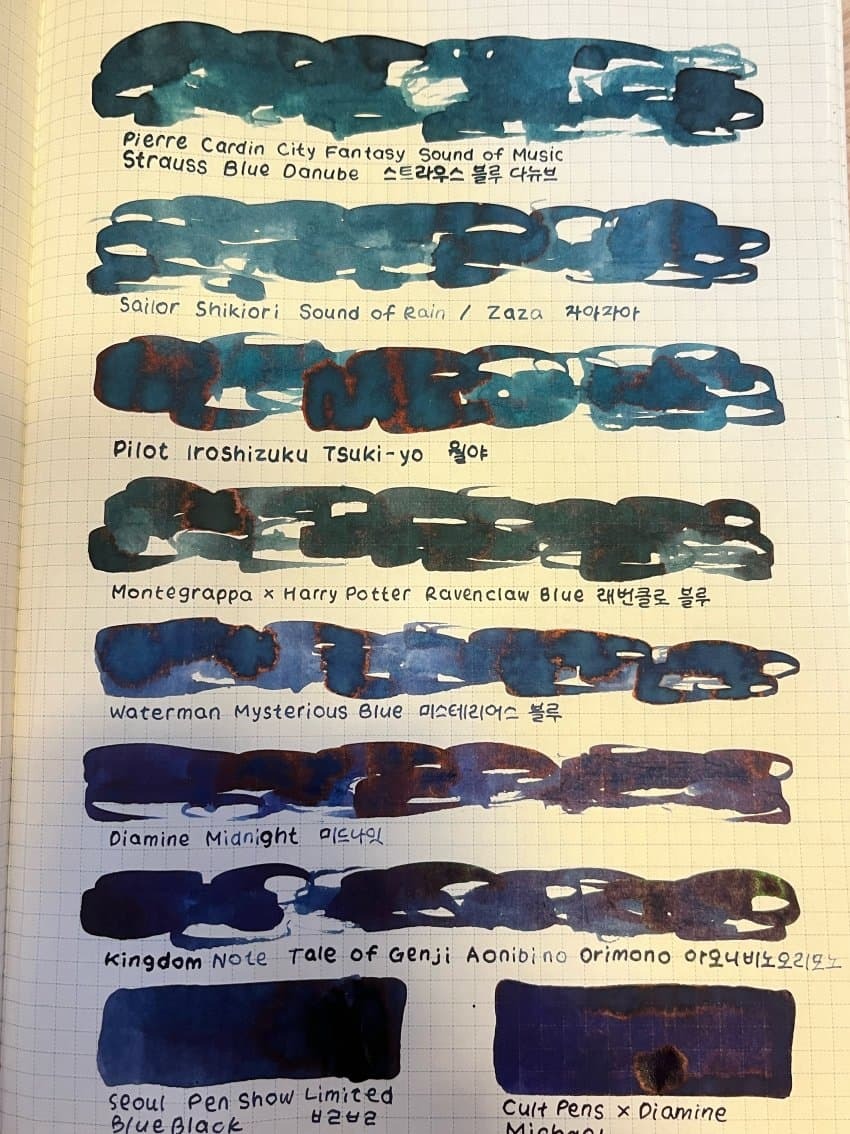 Pierre Cardin City Fantasy Sound of Music
Strauss Blue Danube 스트라우스 블루 다뉴브
Sailor Shikiori Sound of Rain / Zaza 자아자아
Pilot Iroshizuku Tsuki-yo 월야
Montegrappa × Harry Potter Ravenclaw Blue 래번클로 블루
Waterman Mysterious Blue 미스테리어스 블루
Diamine Midnight 미드나잇
Kingdom Note Tale of Genji Aonibino Orimono 아오니비노오리모노
Seoul Pen Show Limited
Blue Black 브르브르
Cult Pens × Diamine